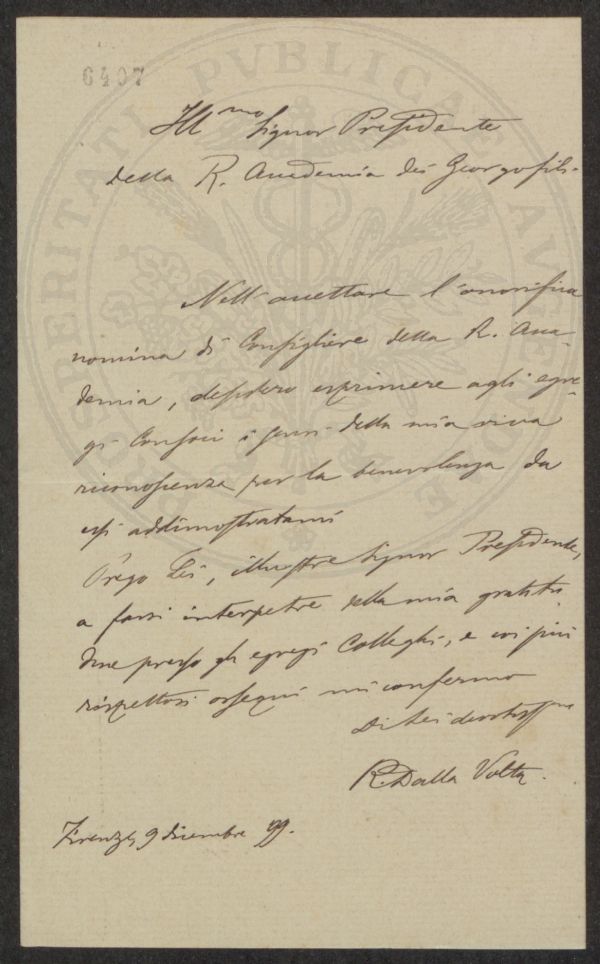 6407
Ill.mo Signor Presidente
della R. Accademia dei Georgofili.
Nell'accettare l'onorifica
nomina di Consigliere della R. Acca-
demia, desidero esprimere agli egre-
gi Consoci i sensi della mia viva
riconoscenza per la benevolenza da
essi addimostratami
Prego Lei, illustre Signor Presidente,
a farsi interpetre della mia gratitu
dine presso gli egregi Colleghi, e coi più
rispettosi ossequi mi confermo
Di Lei devotiss.mo
R. Dalla Volta.
Firenze, 9 dicembre 99.
PROSPERITATI PVBLICAE AVGENDAE